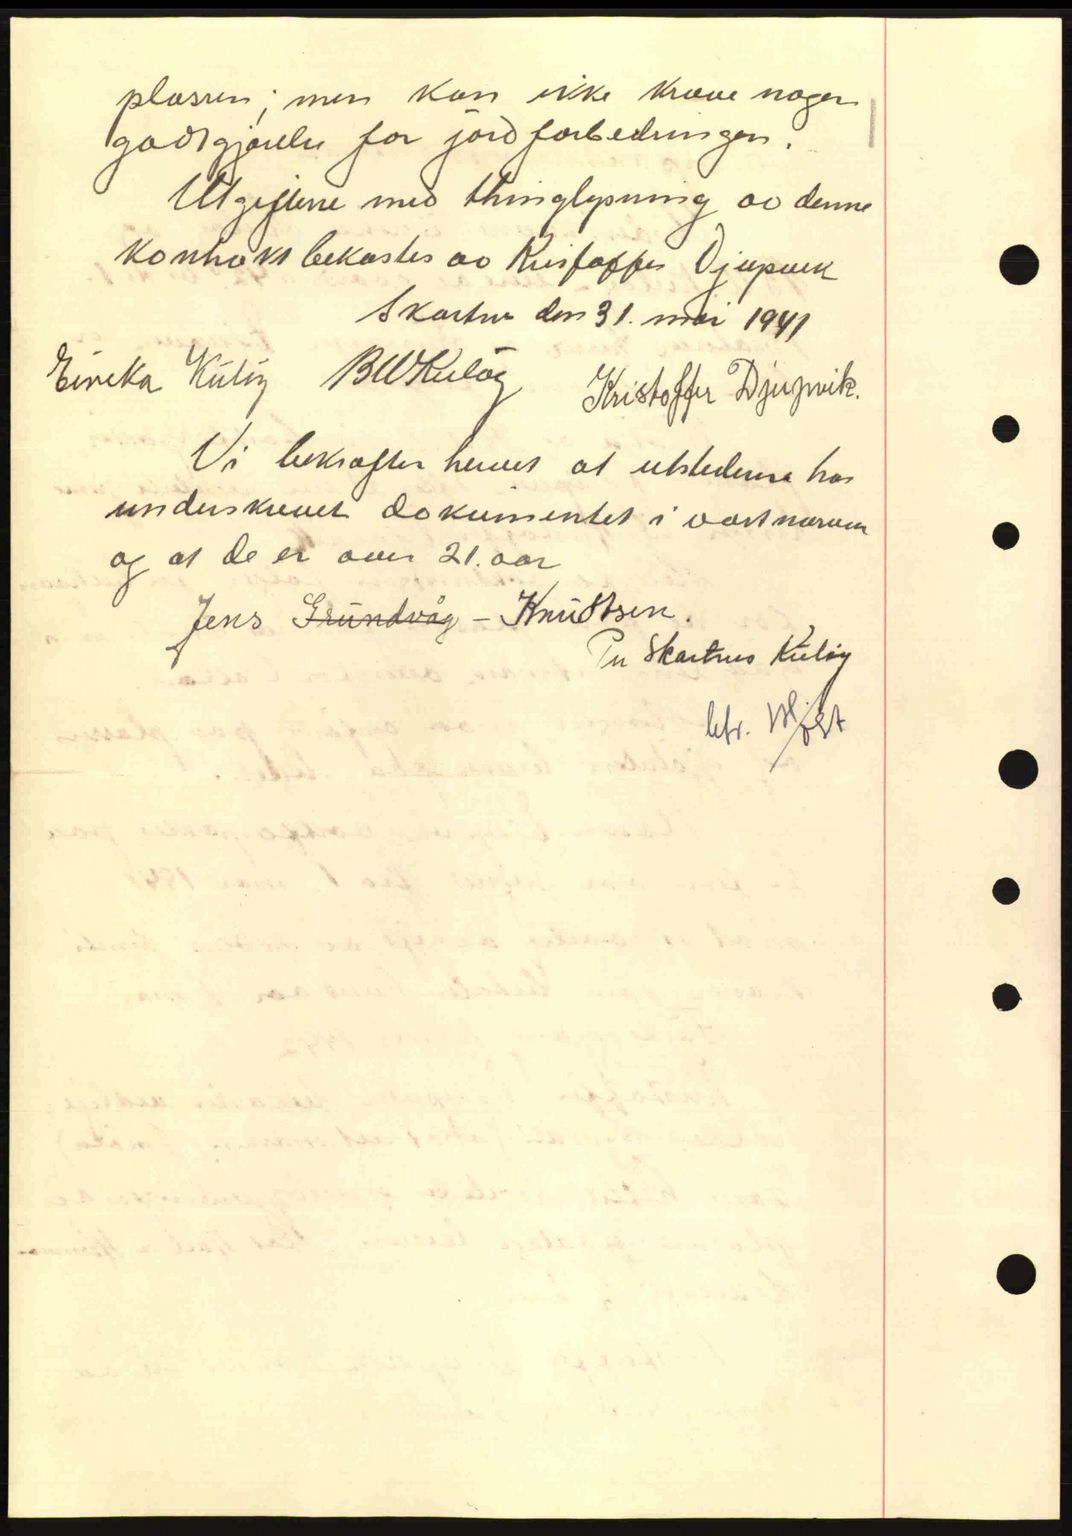 plassen; men kan ikke kræve nogen
godtgjørelse for jordforbedringen.
Utgiftene med thinglysning av denne
kontrakt bekostes av Kristoffer Djupvik
den 31. mai 1941
Kulöy BWKulöy Kristoffer Djupvik.
Vi bekræfter herved at utstederne har
underskrevet dokumentet i vort nærvær
og at de er over 21. aar
Jens Grundvåg - Knutsen.
Kulöy